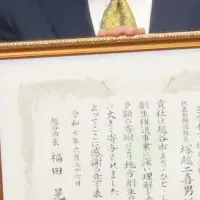 代表取締役社長 塚越二喜男
貴社は越谷市まち・ひと・し
創生推進事業に深い理解を
多額の寄附により地方創生
に大きく寄与されました
よってここに感謝の意を表
令和七年六月二十四日
越谷市長 福田 晃